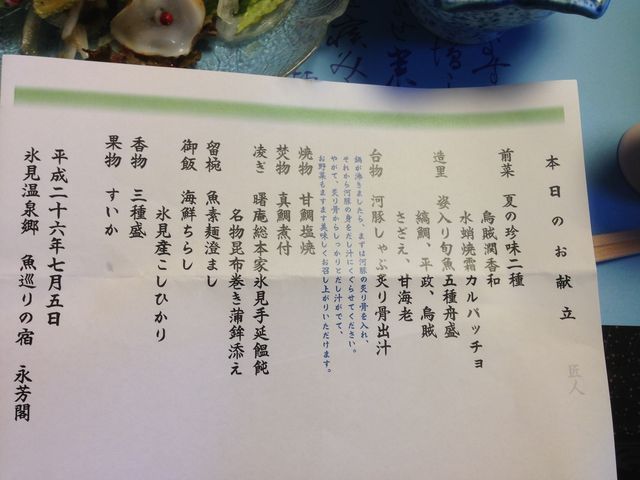 本日のお献立
匠人
前菜 夏の珍味二種
烏賊潤香和
水蛸焼霜カルパッチョ
造里 姿入り旬魚五種舟盛
縞鯛、平政、烏賊
さざえ、甘海老
台物 河豚しゃぶ炙り骨出汁
鍋が沸きましたら、まずは河豚の炙り骨を入れ、
それから河豚の身をだし汁にくぐらせてください。
やがて、炙り骨からしっかりとだし汁がでて、
お野菜もますます美味しくお召し上がりいただけます。
焼物 甘鯛塩焼
焚物 真鯛煮付
凌ぎ 曙庵総本家氷見手延饂飩
名物昆布巻き蒲鉾添え
留椀 魚素麺澄まし
御飯 海鮮ちらし
氷見産こしひかり
香物 三種盛
果物 すいか
平成二十六年七月五日
氷見温泉郷 魚巡りの宿 永芳閣